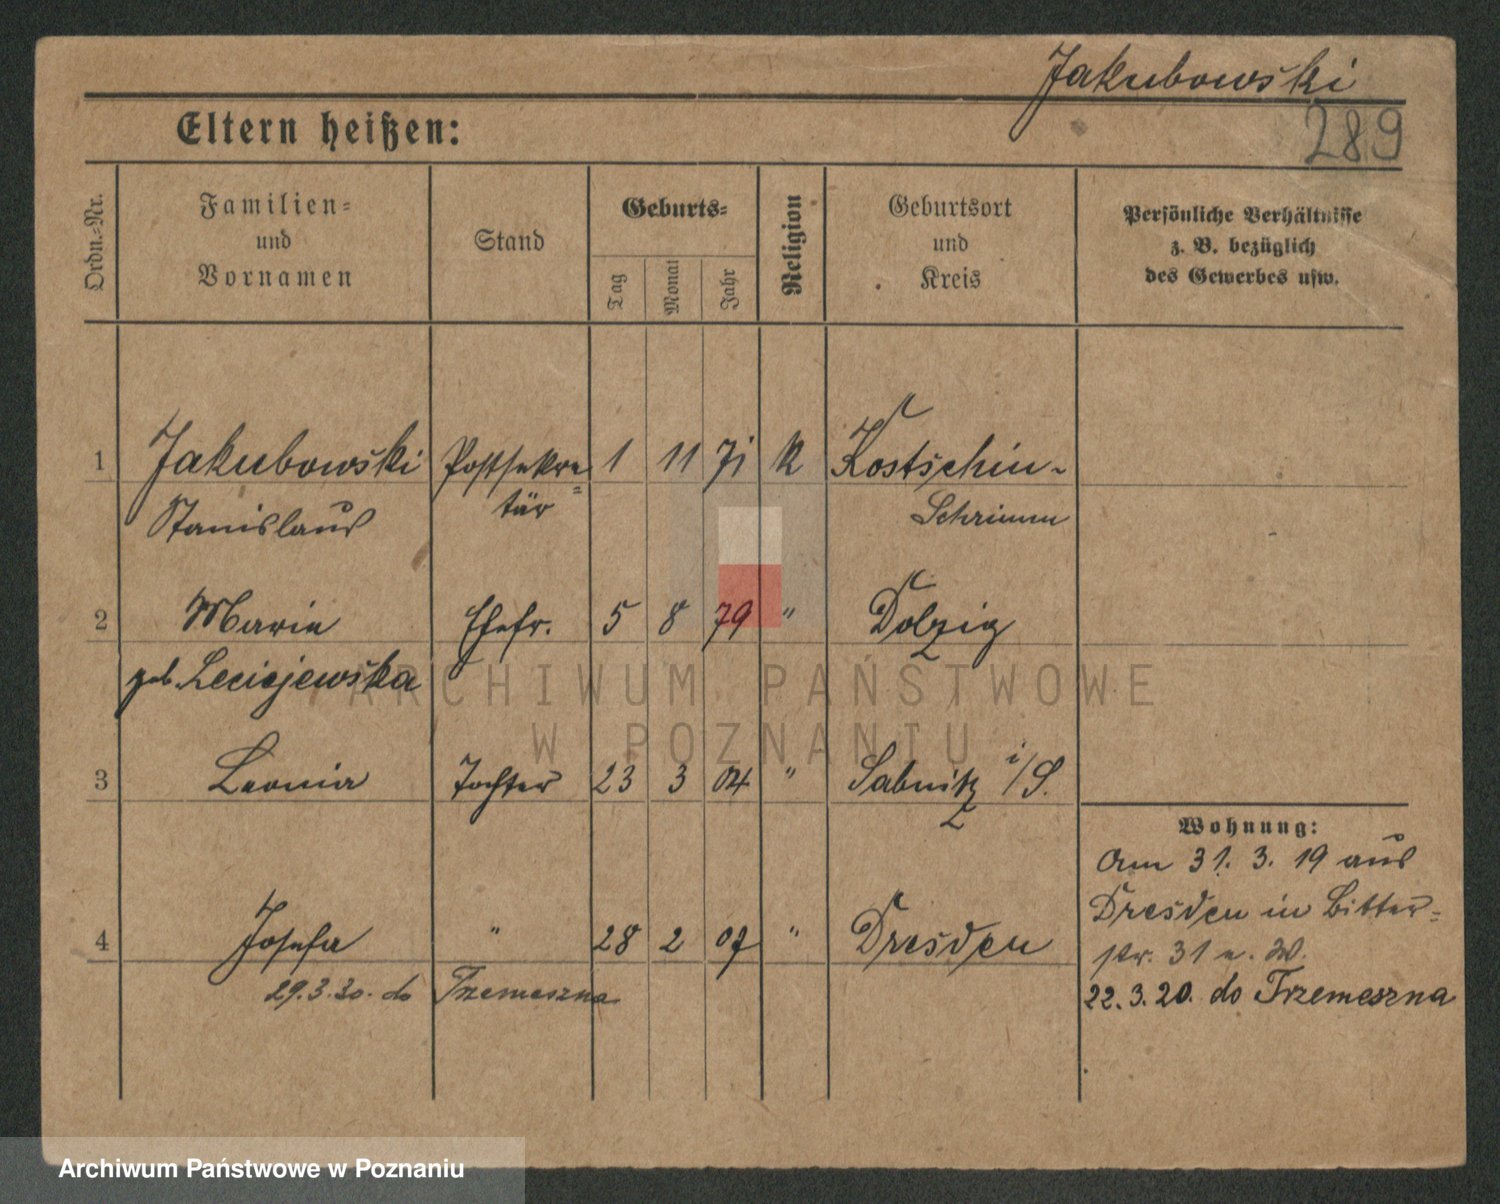 Jakubowski
289
Eltern heißen:
Ordn.-Nr.
Familien-
und
Vornamen
Stand
Geburts-
Tag
Monat
Jahr
Religion
Geburtsort
und
Kreis
Persönliche Verhältnisse
z. B. bezüglich
des Gewerbes usw.
1 Jakubowski Postsekre= 1 11 71 k Kostschin-
Stanislaus tär Schrimm
2 Marie Ehefr. 5 8 79 " Dolzig
geb. Leciejewska
ARCHIWUM PAŃSTWOWE
W POZNANIU
3 Leonia Tochter 23 3 04 " Sabnitz i/S.
Wohnung:
Am 31. 3. 19 aus
Dresden in Bitter-
str. 31 u. W.
22. 3. 20. do Trzemeszna
4 Josefa " 28 2 07 " Dresden
29. 3. 20. do Trzemeszna
Archiwum Państwowe w Poznaniu